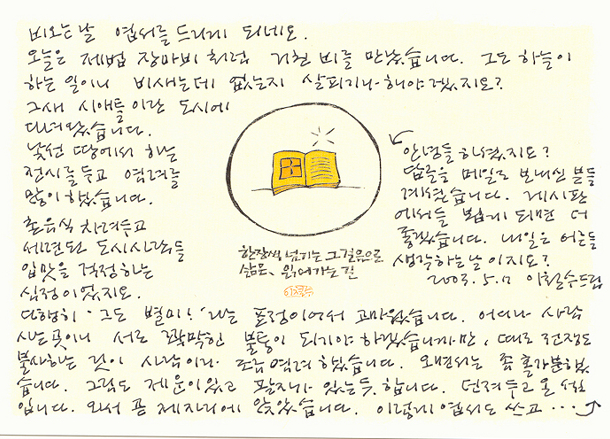 비오는날 엽서를 드리게 되네요.
오늘은 제법 장마비처럼 거친 비를 만났습니다. 그도 하늘이
하는 일이니 비새는데 없는지 살피기나 해야겠지요?
그새 시애틀이란 도시에
다녀왔습니다.
낯선 땅에서 하는
전시를 두고 염려를
많이 했습니다.
촌음식 차려두고
세련된 도시사람들
입맛을 걱정하는
심정이었지요.
다행히 '그도 별미!' 라는 표정이어서 고마웠습니다. 어디나 사람
사는 곳이니 서로 팍팍한 불통이 되기야 하겠습니까만, 때로 전쟁도
불사하는 것이 사람이라 조금 염려했습니다. 오면서는 좀 홀가분했
습니다. 그림도 제 운이 있고 팔자가 있는 듯 합니다. 던져두고 온 셈
입니다. 와서 곧 제자리에 앉았습니다. 이렇게 엽서도 쓰고 …
안녕들 하셨지요?
답글을 메일로 보내신 분들
계셨습니다. 게시판
에서들 뵙게 되면 더
좋겠습니다. 내일은 어른들
생각하는 날이지요?
2003. 5. 7 이철수드림
한장씩 넘기는 그 걸음으로
삶은, 읽어가는 것